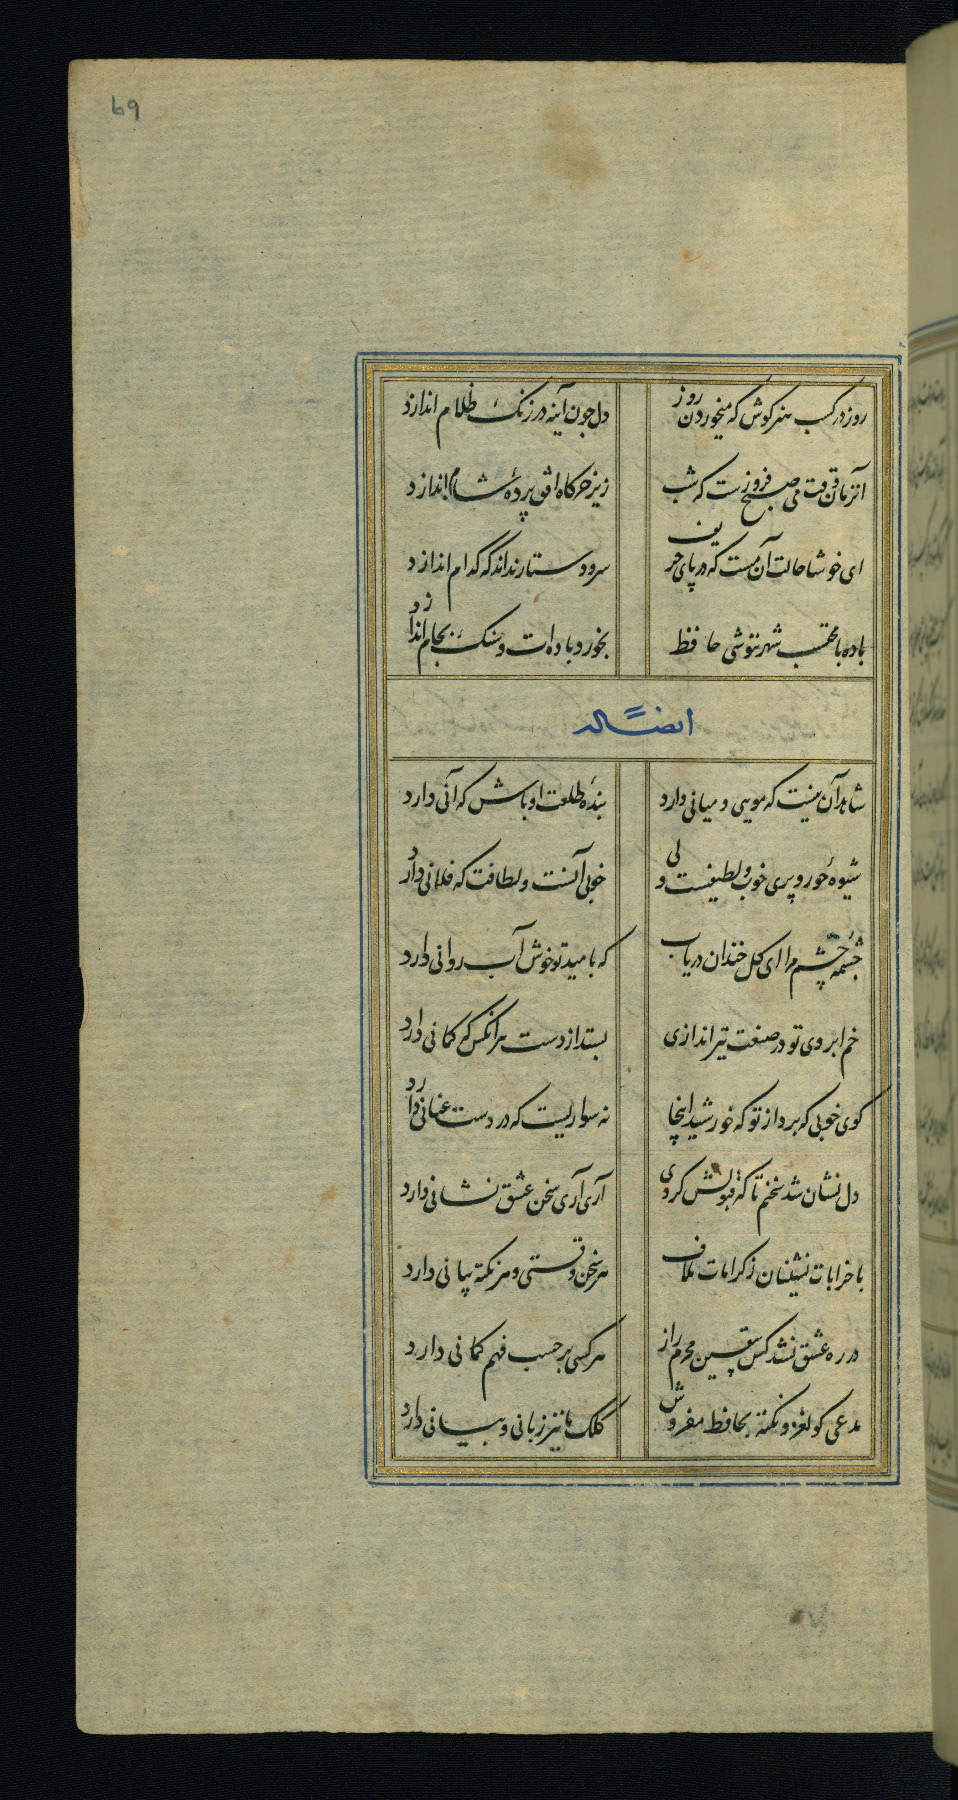 69
روز در کسب هنر کوش که میخوردن روز
دل چون آینه در زنک ظلام اندازد
آنزمان وقت می صبح فروزست که شب
زیر خرکاه افق پردهٔ شام اندازد
ای خوشا حالت آن مست که در پای حریف
سر و دستار نداند که کدام اندازد
باده با محتسب شهر ننوشی حافظ
بخورد باده ات و سنک بجام اندازد
ایضاً له
شاهد آن نیست که مویی و میانی دارد
بندهٔ طلعت او باش که آنی دارد
شیوهٔ حور و پری خوب و لطیفست ولی
خوبی آنست و لطافت که فلانی دارد
چشمهٔ چشم مرا ای کل خندان دریاب
که بامید تو خوش آب روانی دارد
خم ابروی تو در صنعت تیر اندازی
بستد از دست هر آنکس که کمانی دارد
کوی خوبی که برد از تو که خورشید اینجا
نه سواریست که در دست عنانی دارد
دل نشان شد سخنم تا که قبولش کردی
آری آری سخن عشق نشانی دارد
با خرابات نشینان ز کرامات ملاف
هر سخن وقتی و هر نکته بیانی دارد
در ره عشق نشد کس بیقین محرم راز
هر کسی بر حسب فهم کمانی دارد
مدعی کو لغز و نکته بحافظ مفروش
کلک ما نیز زبانی و بیانی دارد